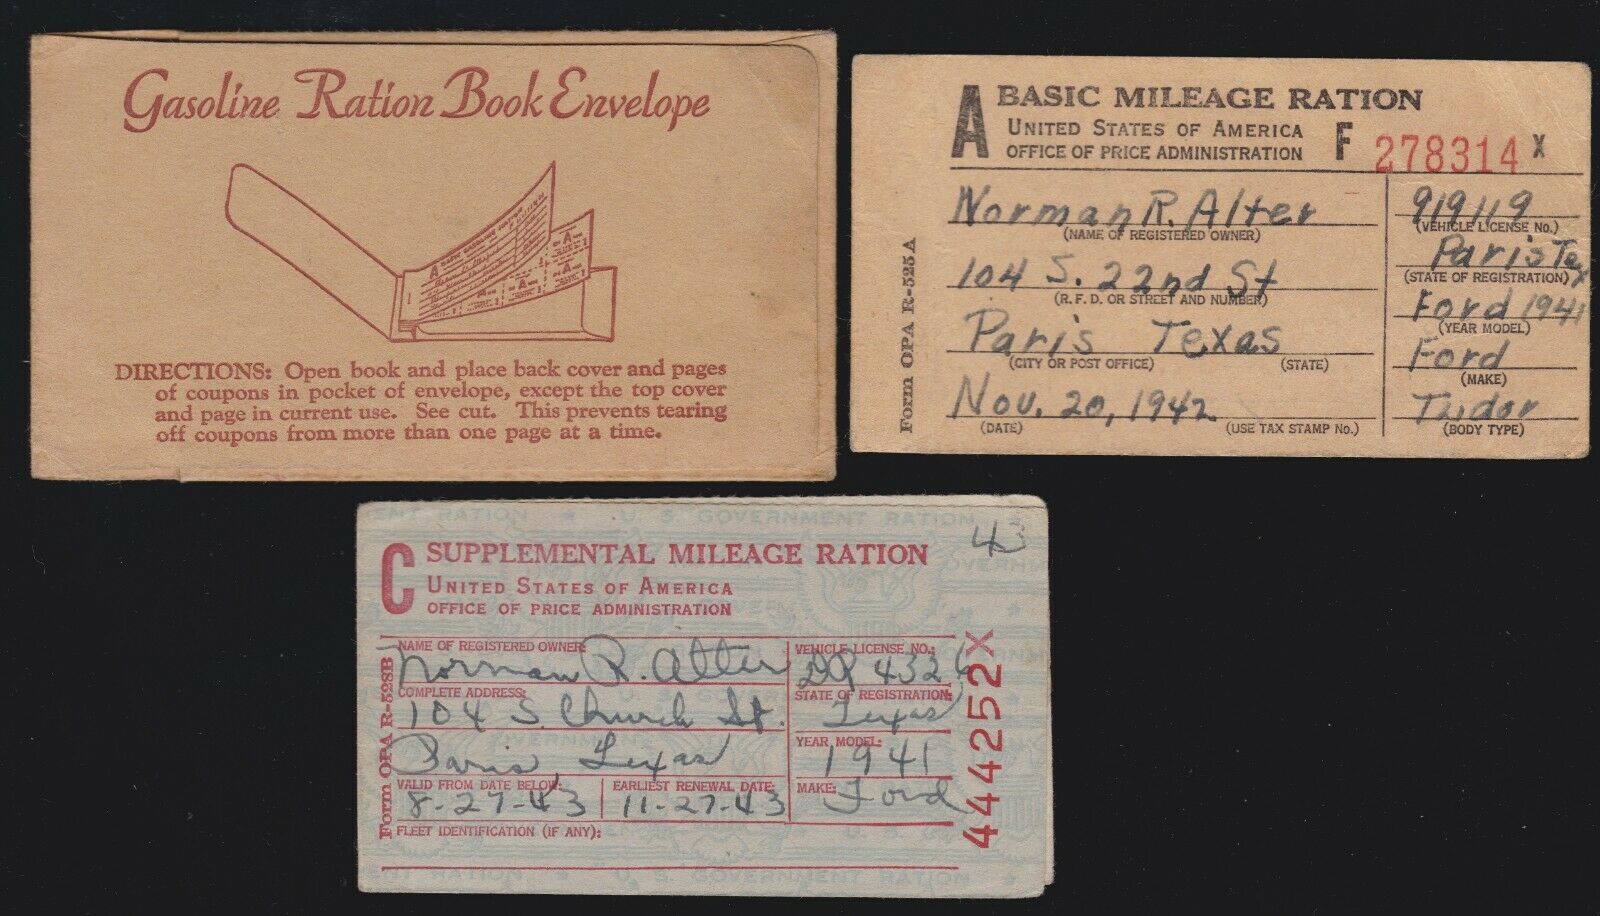 Gasoline Ration Book Envelope
DIRECTIONS: Open book and place back cover and pages
of coupons in pocket of envelope, except the top cover
and page in current use. See cut. This prevents tearing
off coupons from more than one page at a time.
A BASIC MILEAGE RATION
UNITED STATES OF AMERICA
OFFICE OF PRICE ADMINISTRATION
F 278314 X
Form OPA R-525 A
Norman R. Alter
(NAME OF REGISTERED OWNER)
104 S. 22nd St
(R. F. D. OR STREET AND NUMBER)
Paris Texas
(CITY OR POST OFFICE) (STATE)
Nov. 20, 1942
(DATE) (USE TAX STAMP No.)
919119
(VEHICLE LICENSE No.)
Paris Tex
(STATE OF REGISTRATION)
Ford 1941
(YEAR MODEL)
Ford
(MAKE)
Tudor
(BODY TYPE)
ENT RATION ★ U. S. GOVERNMENT RATION
43
C SUPPLEMENTAL MILEAGE RATION
UNITED STATES OF AMERICA
OFFICE OF PRICE ADMINISTRATION
Form OPA R-528B
NAME OF REGISTERED OWNER:
Norman R. Alter
COMPLETE ADDRESS:
104 S. Church St.
Paris, Texas
VALID FROM DATE BELOW: EARLIEST RENEWAL DATE:
8-27-43 11-27-43
FLEET IDENTIFICATION (IF ANY):
VEHICLE LICENSE NO.:
DP 4326
STATE OF REGISTRATION:
Texas
YEAR MODEL:
1941
MAKE: Ford
444252X
ENT RATION ★ U. S. GOVERNMENT RATION